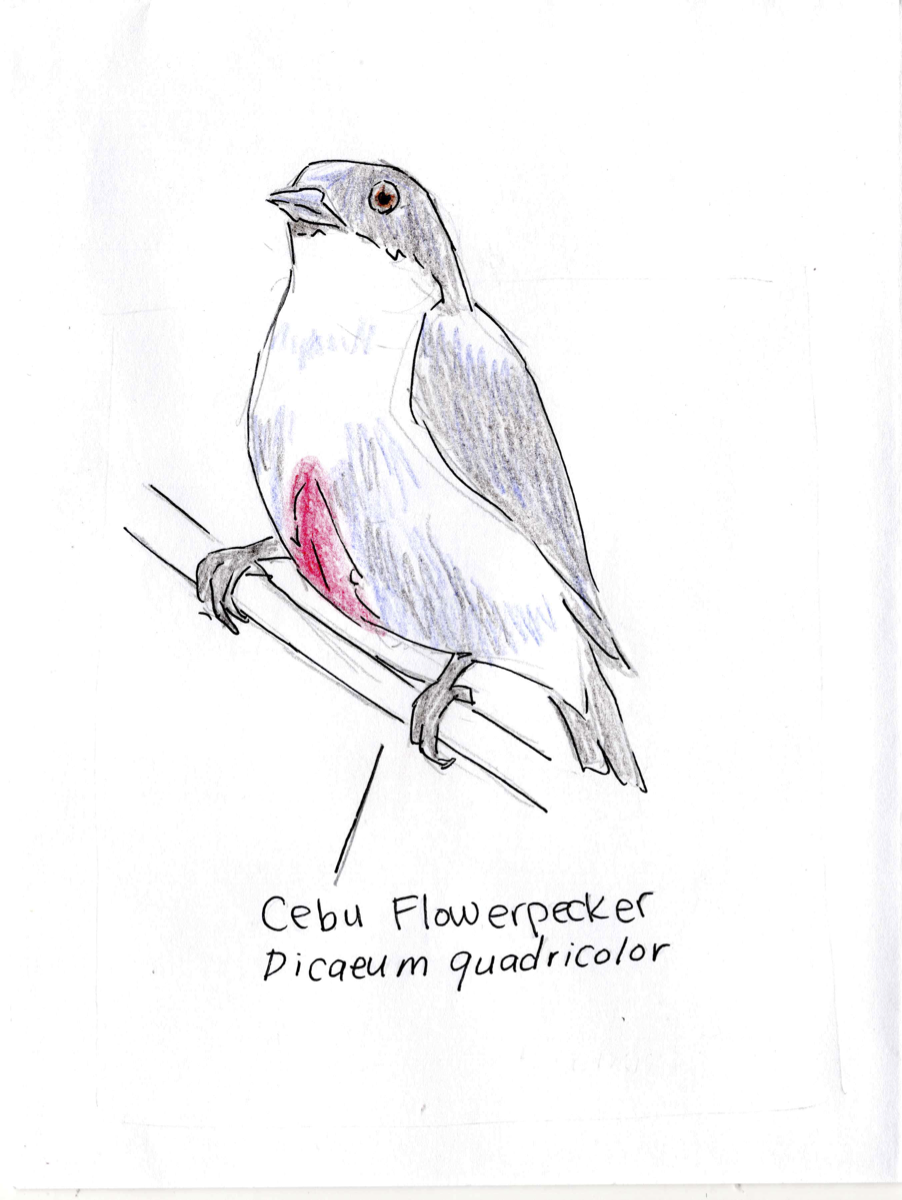 Cebu Flowerpecker
Dicaeum quadricolor